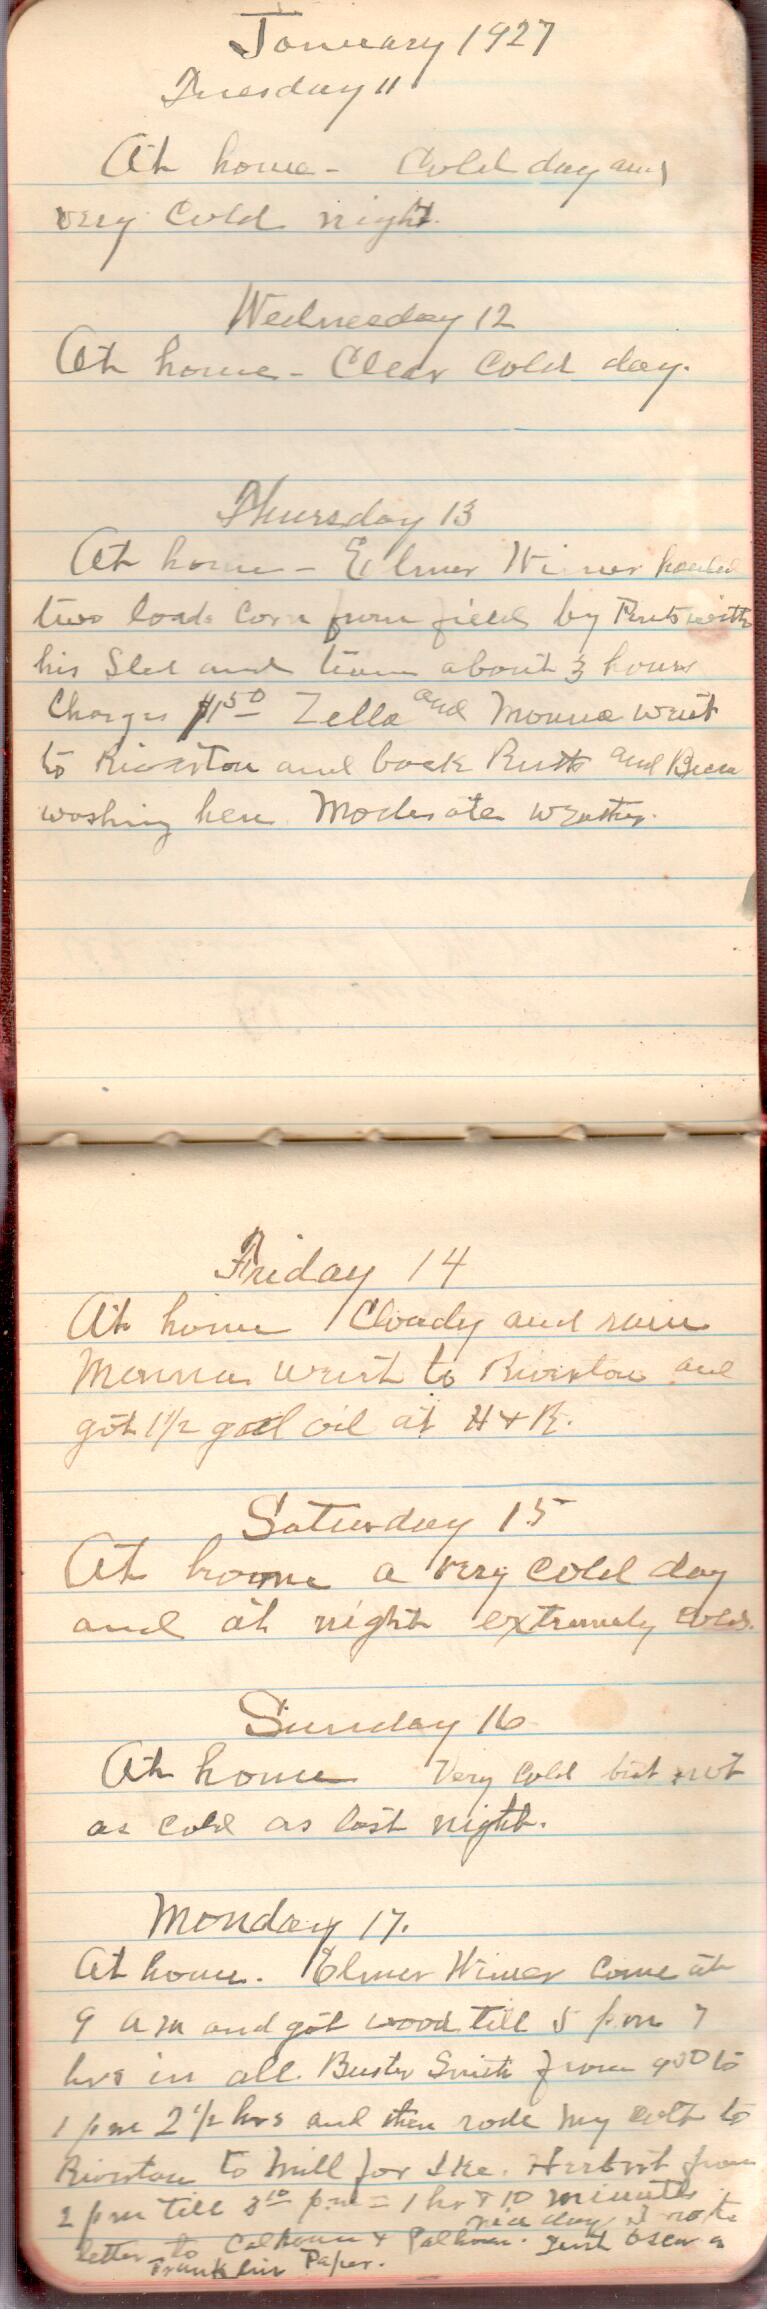 January 1927
Tuesday 11
At home - Cold day and
very Cold night.
Wednesday 12
At home - Clear Cold day.
Thursday 13
At home - Elmer Wimer hauled
two loads Corn from field by with
his Sled and team about 3 hours
Charges $1.50 Zella and Monna went
to Riverton and back Ruth and
washing here Moderate weather.
Friday 14
At home Cloudy and rain
Monna went to Riverton and
got 1 1/2 gal oil at H & R.
Saturday 15
At home a very cold day
and at night extremely cold.
Sunday 16
At home Very Cold but not
as cold as last night.
Monday 17.
At home. Elmer Wimer come at
9 am and got wood till 5 pm 7
hrs in all. Buster Smith from to
1 pm 2 1/2 hrs and then rode my colt to
Riverton to Mill for Ike. Herbert from
2 pm till 3 10 pm = 1 hr & 10 minutes
nice day I
letter to Calhoun & Calhoun. Sent Oscar a
Franklin Paper.